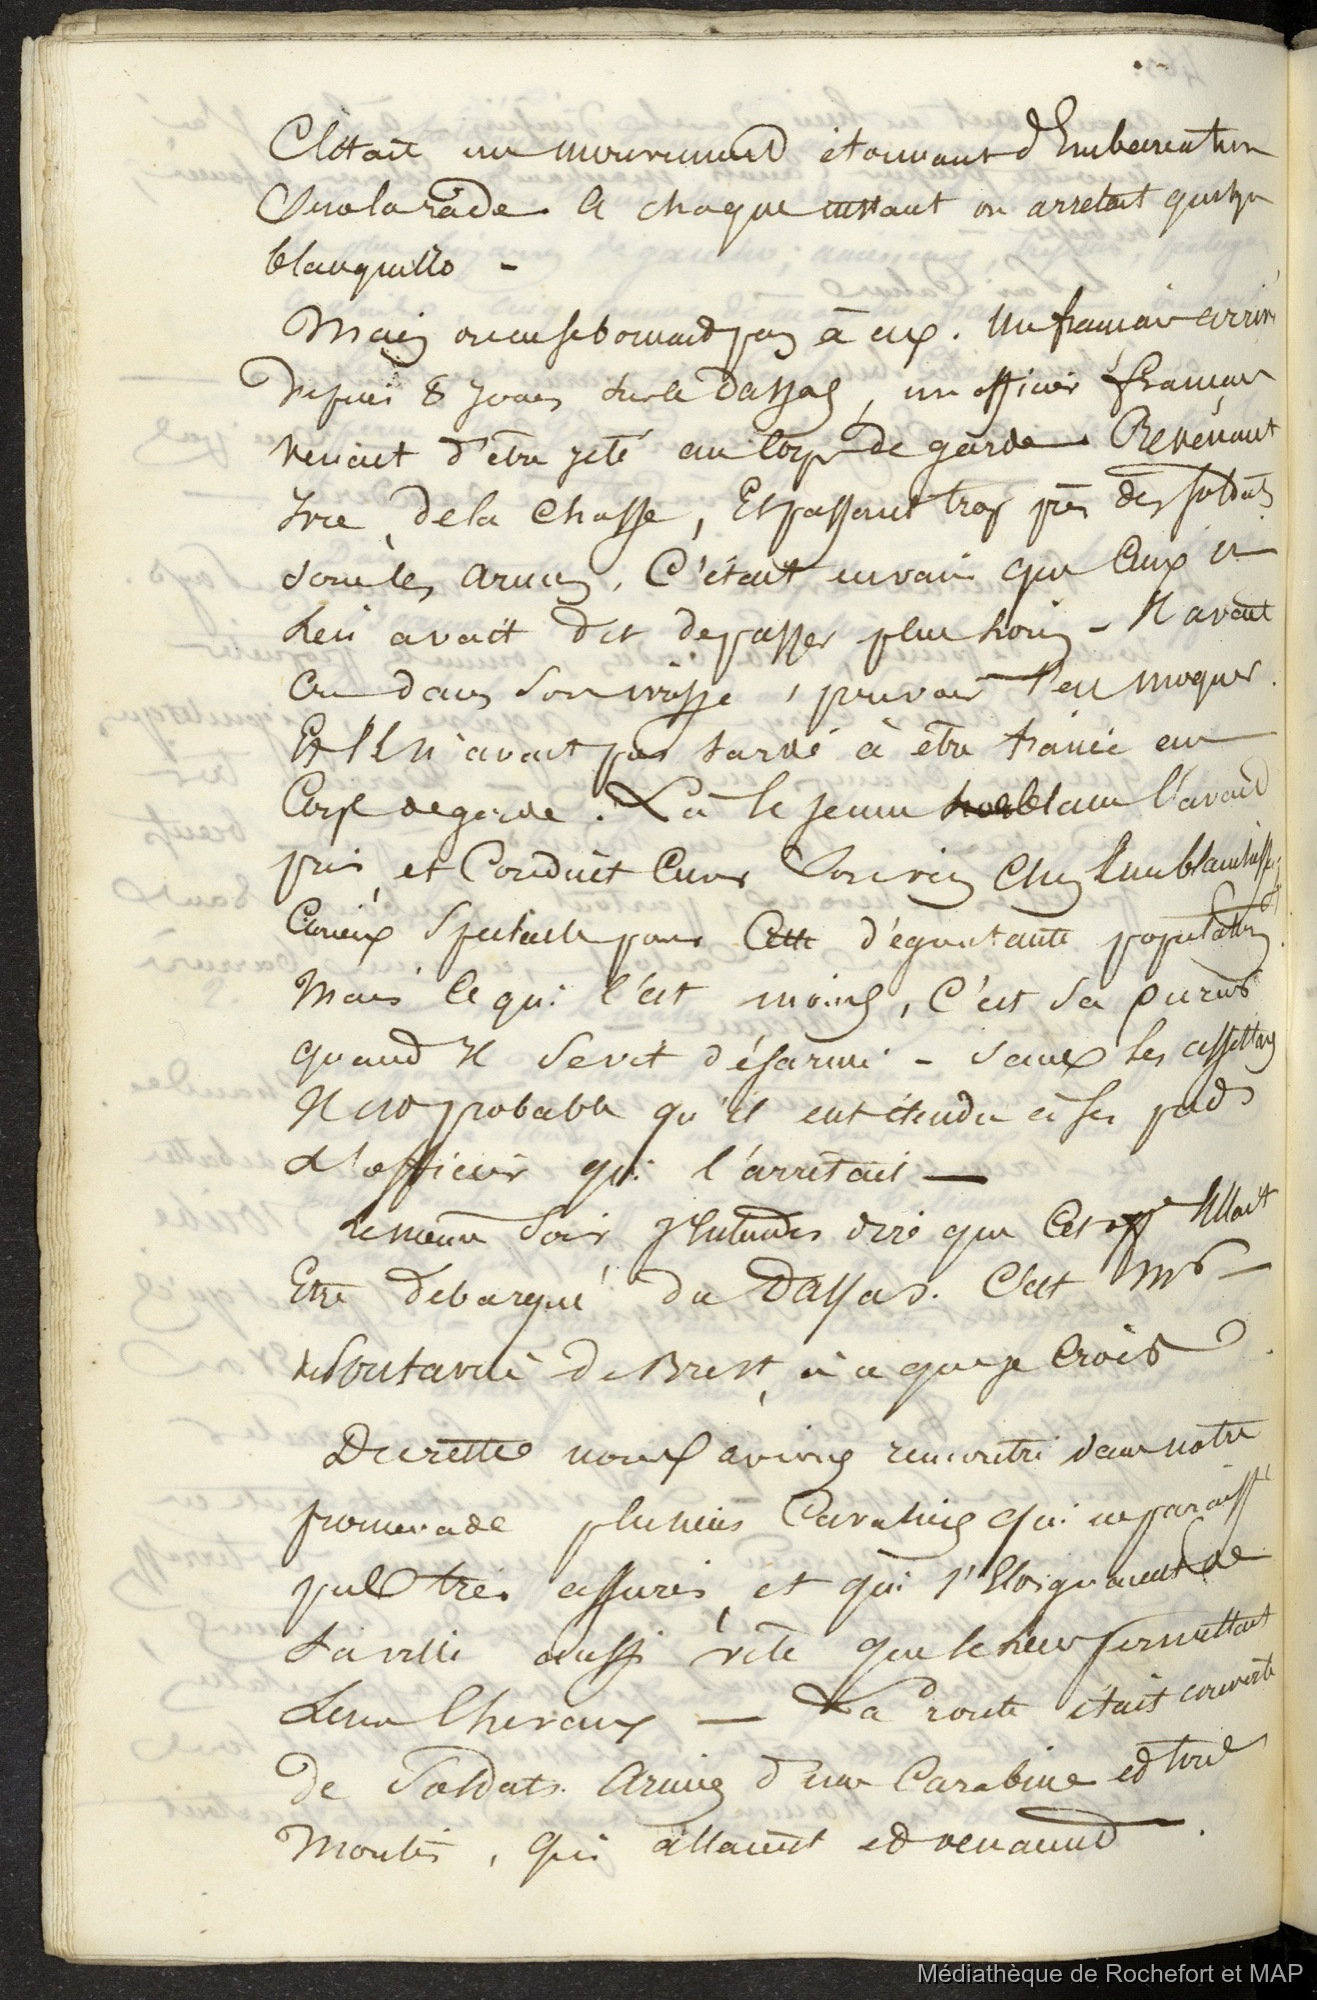 C'était un mouvement étonnant d'Embarcation
Sur la rade. A chaque instant on arretait quelque
blanquillo -
Mais on ne se bornait pas à eux. Un francais arrivé
depuis 8 Jours sur le Dassas, un officier français
venait d'être jeté au Corps de garde. Revenant
Ivre, de la chasse, Et passant trop près des soldats
sous les armes, C'était envain que Ceux ci
Lui avait dit de passer plus loin - Il avait
cru dans son ivresse, pouvoir s'en moquer.
Et Il n'avait pas tardé à être trainé au
Corps de garde. Là le jeune l'avait
pris, et Conduit Chez
Curieux Spectacle pour Cette dégoutante population
Mais Ce qui l'est moins, C'est sa
quand Il se vit désarmé - sans les
Il est probable qu'il eut étendu à ses pieds
L'officier qui l'arrêtait —
Le même Soir J'Entendis dire que Cet off. Allait
Etre debarqué du Dassas. C'est Mr -
de Brest, à ce que je Crois
Du reste nous avions rencontré dans notre
promenade plusieurs Cavaliers qui ne paraiss
pas très assurés, et qui s'Eloignaient de
La ville aussi vite que le leur permettait
Leurs Chevaux — La route était couverte
de Soldats Armés d'une Carabine et tous
Montés, qui allaient et venaient.
Médiathèque de Rochefort et MAP